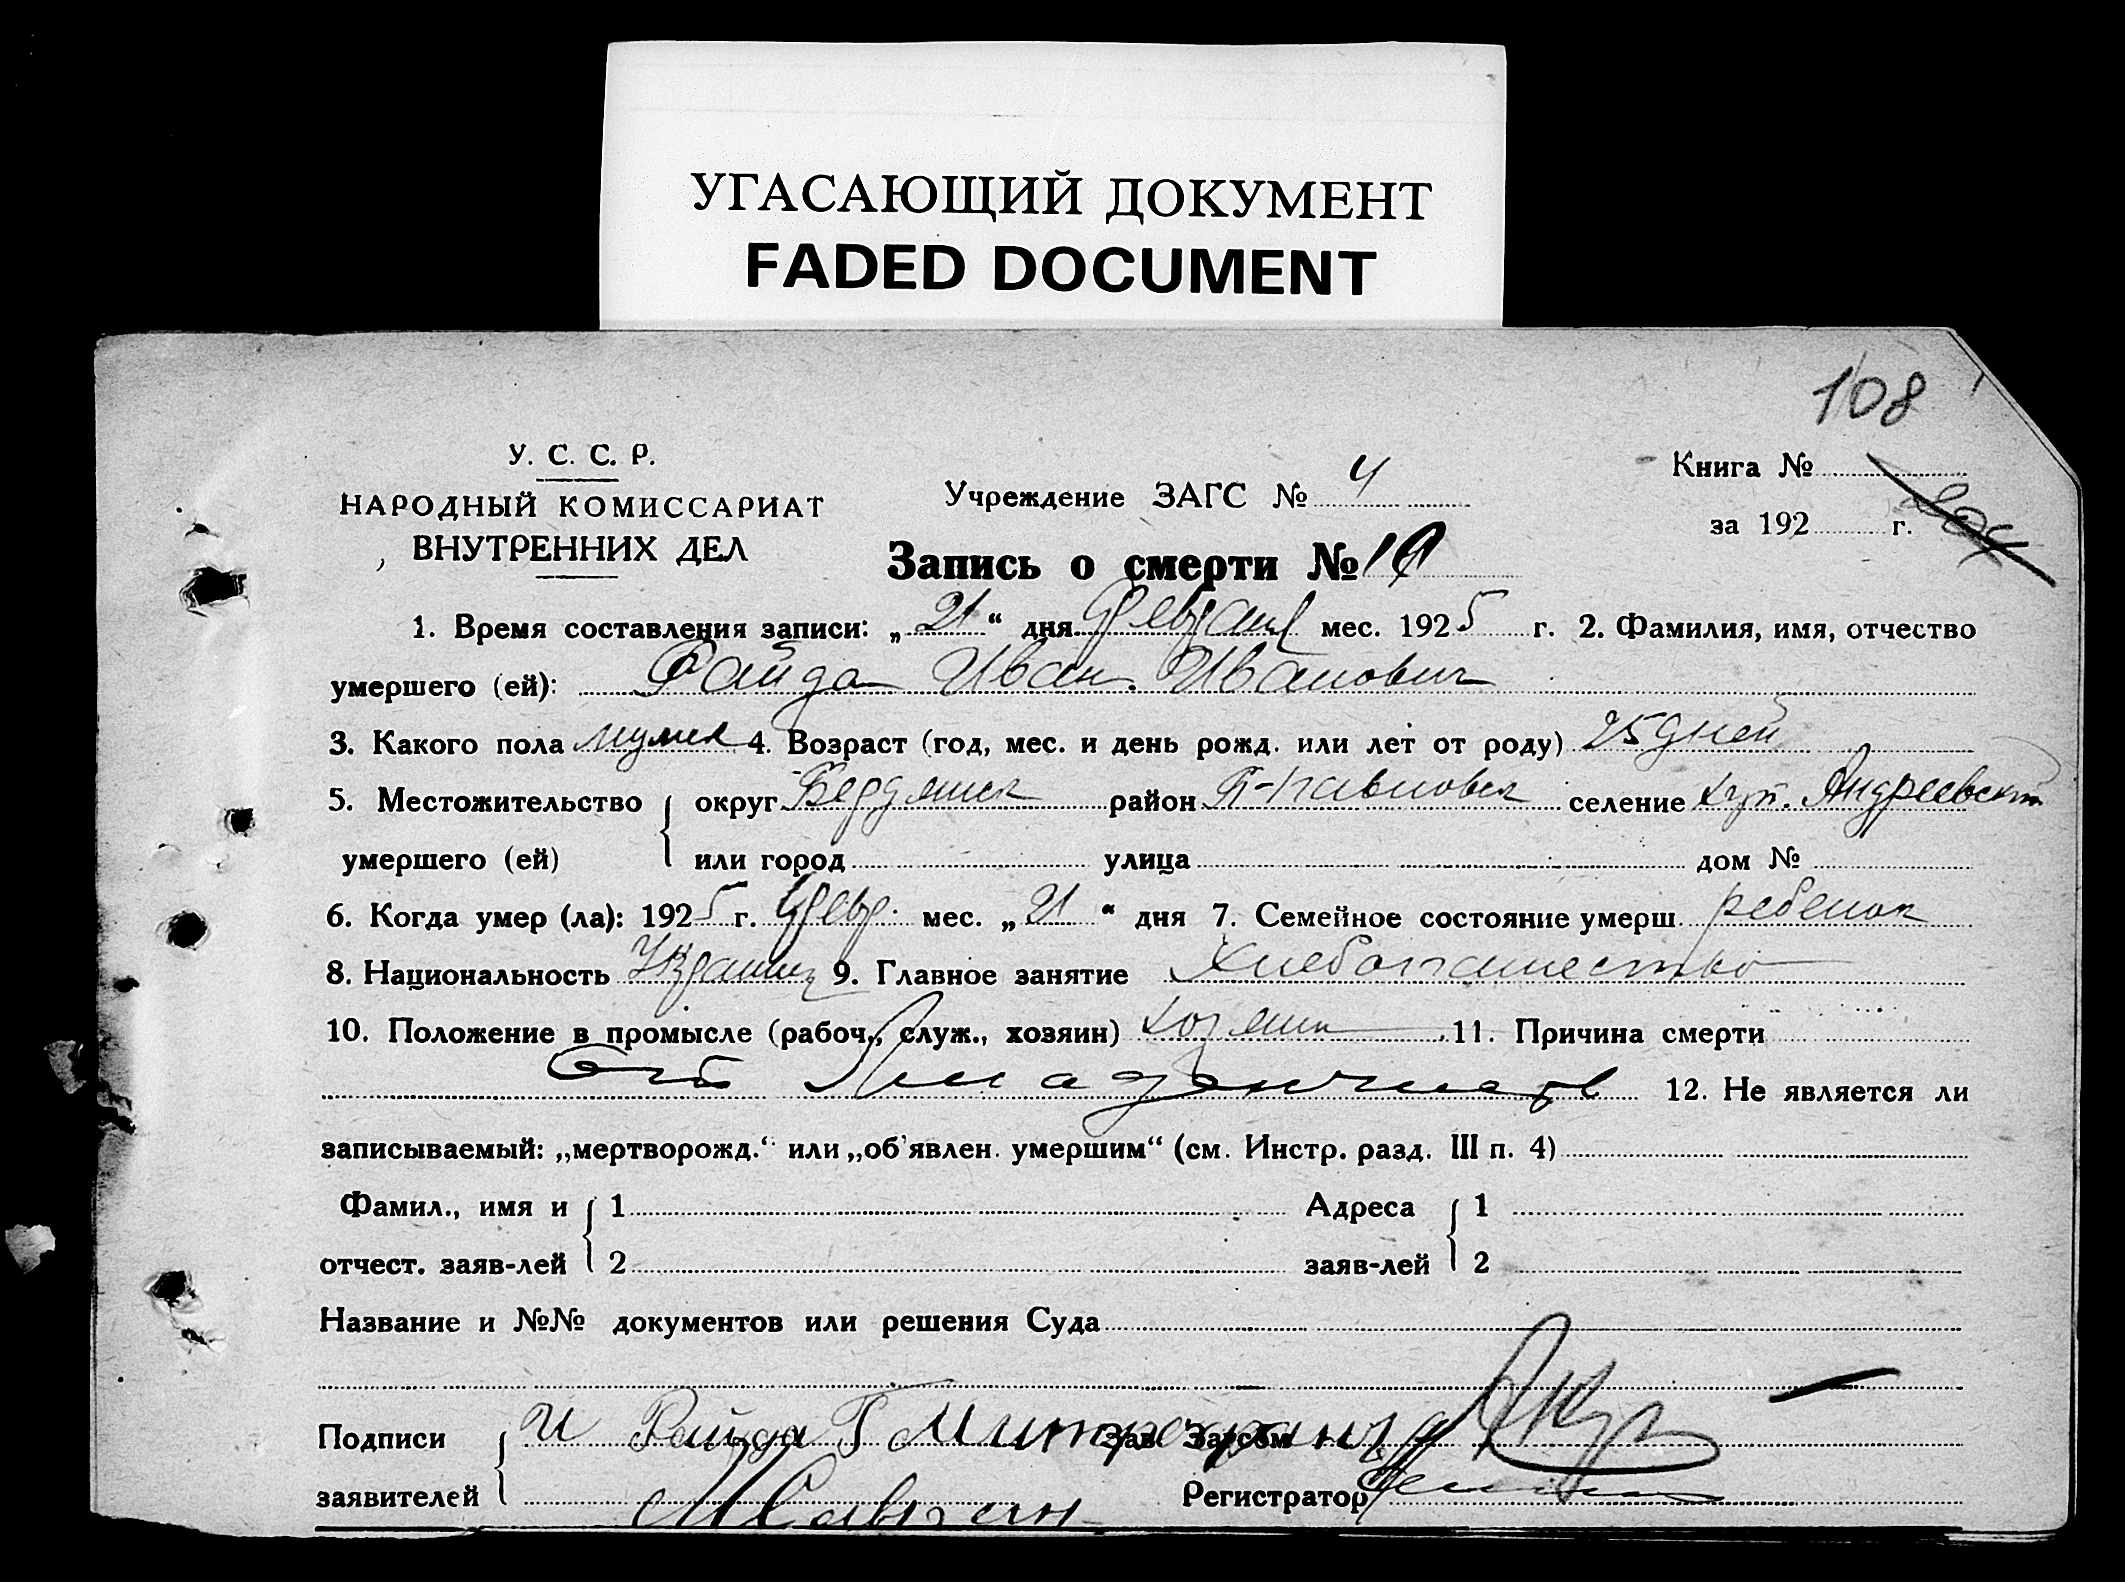 УГАСАЮЩИЙ ДОКУМЕНТ
FADED DOCUMENT
108
У. С. С. Р.
НАРОДНЫЙ КОМИССАРИАТ
ВНУТРЕННИХ ДЕЛ
Учреждение ЗАГС № 4
Книга №
за 192 г.
Запись о смерти № 19
1. Время составления записи: „21“ дня февраля мес. 1925 г. 2. Фамилия, имя, отчество
умершего (ей): Файда Иван Иванович
3. Какого пола мужск 4. Возраст (год, мес. и день рожд. или лет от роду) 25 дней
5. Местожительство округ Бердянск район П-павловск селение хут. Андреевский
умершего (ей) или город улица дом №
6. Когда умер (ла): 1925 г. февр. мес. „21“ дня 7. Семейное состояние умерш. ребенок
8. Национальность Украинец 9. Главное занятие Хлебопашество
10. Положение в промысле (рабоч., служ., хозяин) хозяин 11. Причина смерти
От Младенческ 12. Не является ли
записываемый: „мертворожд.“ или „об'явлен. умершим“ (см. Инстр. разд. III п. 4)
Фамил., имя и 1 Адреса 1
отчест. заяв-лей 2 заяв-лей 2
Название и №№ документов или решения Суда
Подписи И Файда Зав Загсом
заявителей Регистратор